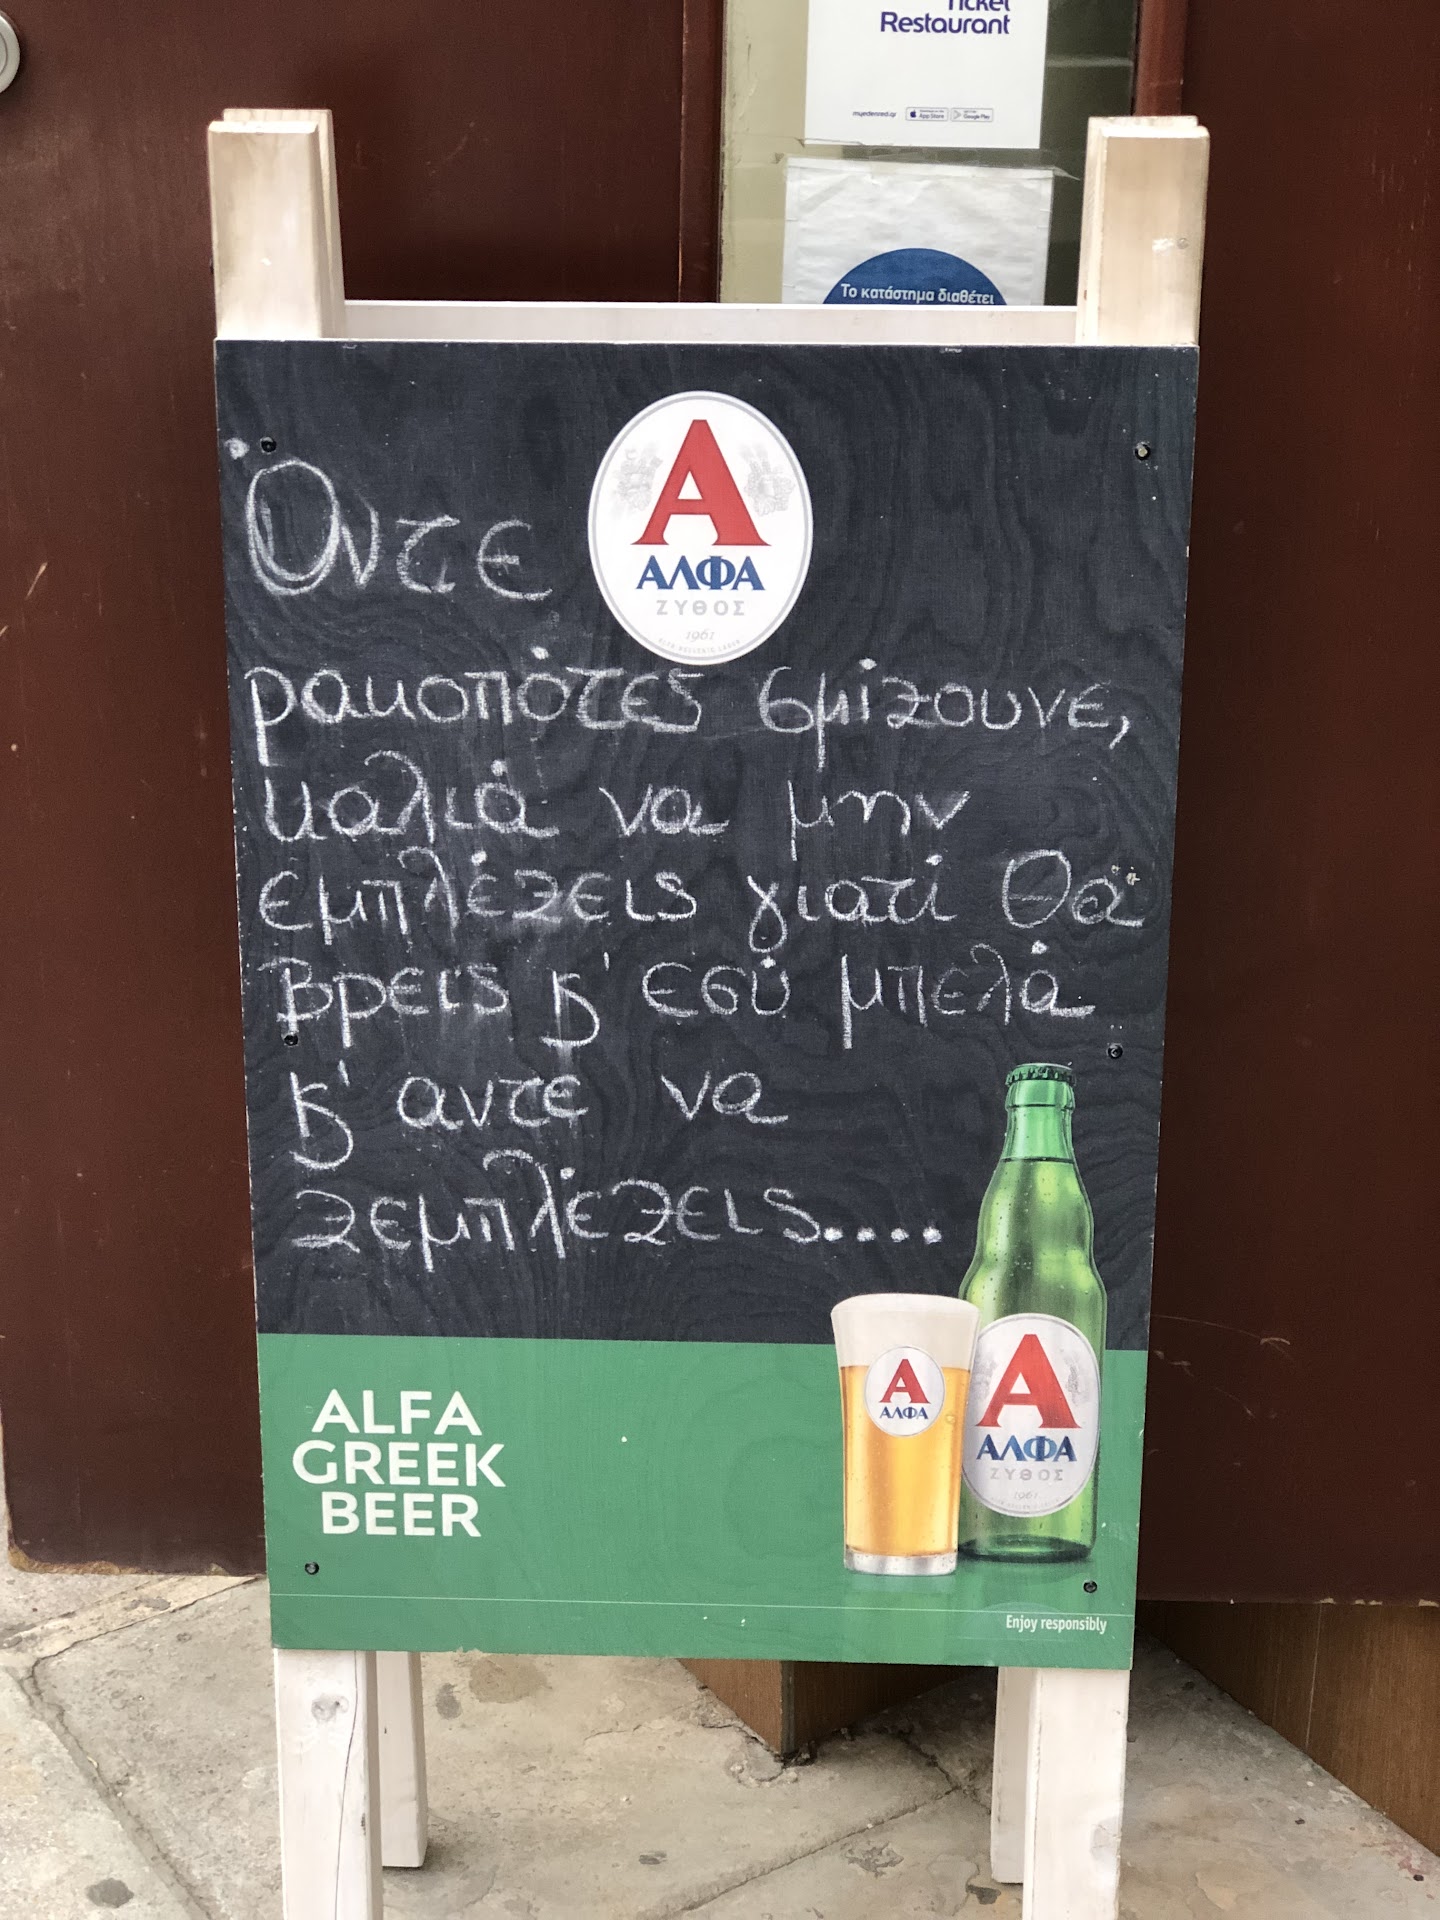 Ticket
Restaurant
myedenred.gr
App Store
Google Play
Το κατάστημα διαθέτει
Όντε
Α
ΑΛΦΑ
ΖΥΘΟΣ
1961
ALFA HELLENIC LAGER
ρακοπότες σμίζουνε,
καλιά να μην
εμπλέξεις γιατί θα
βρεις κ' εσύ μπελά
κ' αντε να
ξεμπλέξεις....
Α
ΑΛΦΑ
Α
ΑΛΦΑ
ΖΥΘΟΣ
1961
ALFA
GREEK
BEER
Enjoy responsibly